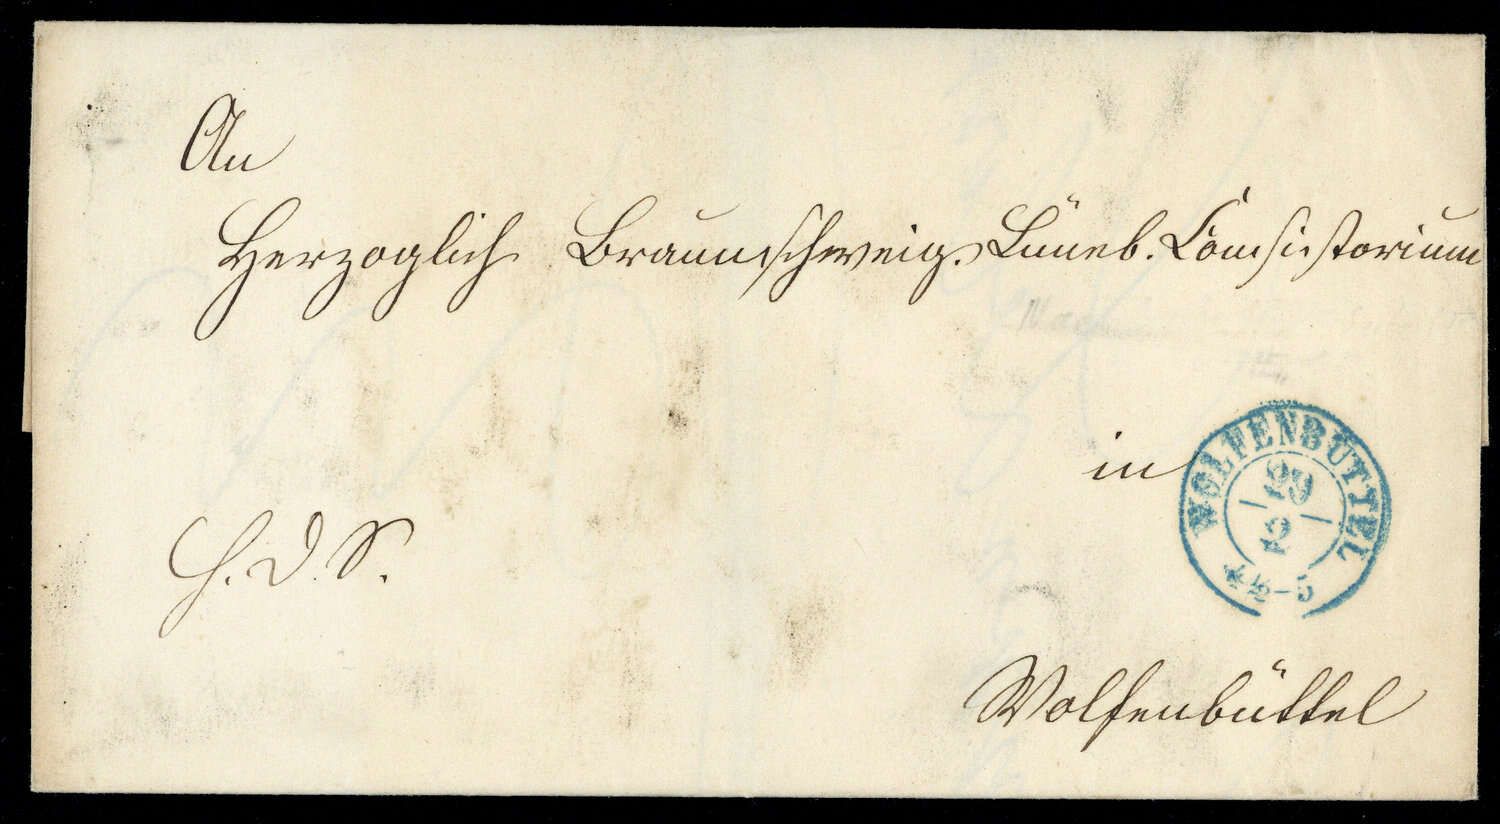 An
Herzoglich Braunschweig. Lüneb. Consistorium
in
WOLFENBÜTTEL
29
2
4½-5
H. D. S.
Wolfenbüttel